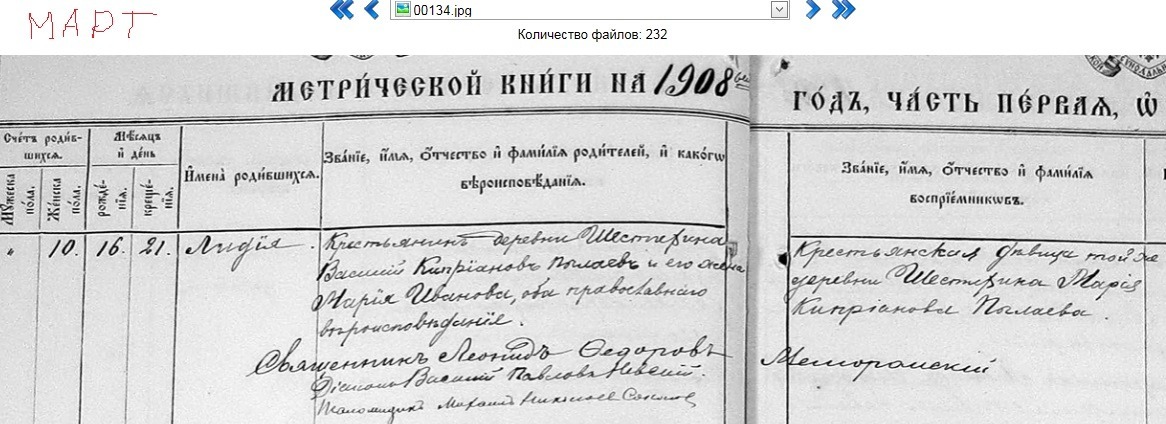 МАРТ
00134.jpg
Количество файлов: 232
МЕТРИ́ЧЕСКОЙ КНИ́ГИ НА 1908 ГО́ДЪ, ЧА́СТЬ ПЕ́РВАЯ, Ѡ҆
Сче́тъ роди́вшихся.
Мѹ́жеска по́ла.
Же́нска по́ла.
Мѣ́сяцъ и҆ де́нь
рожде́нїя.
креще́нїя.
И҆мена̀ роди́вшихся.
Зва́нїе, и҆́мя, ѻ҆́тчество и҆ фами́лїя роди́телей, и҆ како́гѡ
вѣроисповѣ́данїя.
Зва́нїе, и҆́мя, ѻ҆́тчество и҆ фами́лїя
воспрїе́мникѡвъ.
" 10. 16. 21. Лидія.
Крестьянинъ деревни Шестерина
Василій Кипріановъ Пылаевъ и его жена
Марія Иванова, оба православнаго
вѣроисповѣданія.
Крестьянская дѣвица той же
деревни Шестерина Марія
Кипріанова Пылаева.
Священникъ Леонидъ Ѳедоровъ Меморскій
Діаконъ Василій Павловъ Невскій.
Псаломщикъ Михаилъ